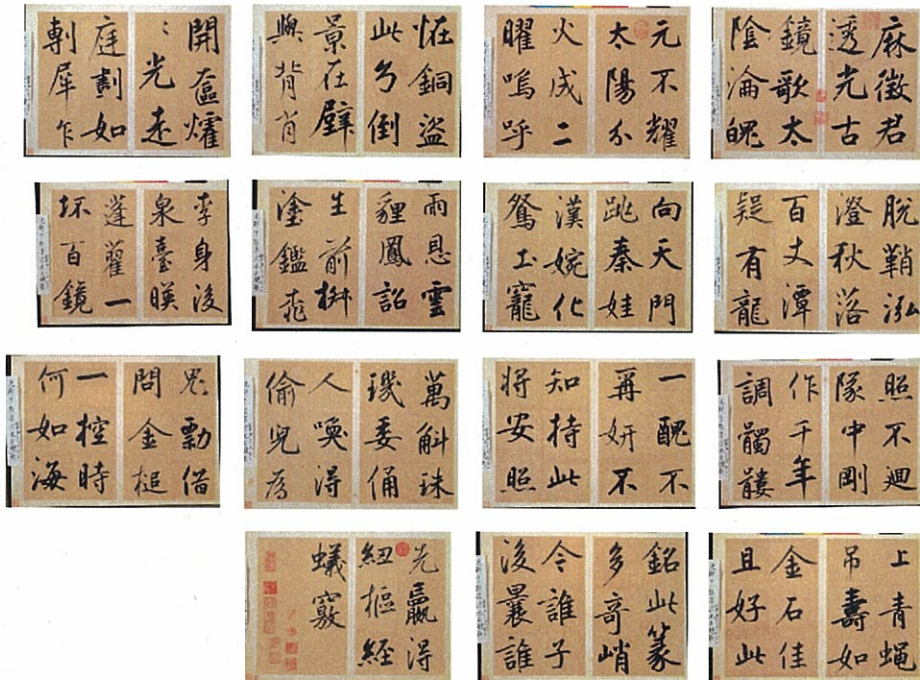 麻徵君
透光古
鏡歌太
陰淪魄
元不耀
太陽分
火成二
曜嗚呼
恠銅盜
此乃倒
景在壁
與背肖
開奩爟
〻光走
庭劃如
剸犀乍
脫鞘泓
澄秋落
百丈潭
疑有龍
向天門
跳秦娃
漢婉化
鴛土竈
雨恩雲
貍鳳詔
生前拚
塗鑑飛
李身後
泉臺暎
蓬藋一
坏百鏡
照不迴
隊中剛
作千年
調髑髏
一醜不
再妍不
知持此
将安照
萬斛珠
璣委俑
人喚得
偷兒為
鬼勡借
問金槌
一控時
何如海
上青蝇
吊壽如
金石佳
且好此
銘此篆
多奇峭
令誰子
後曩誰
先贏得
紐樞經
蟻竅